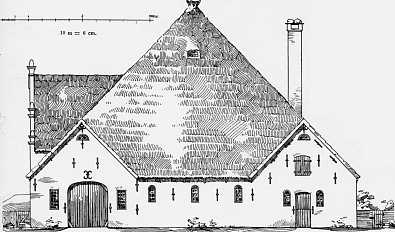 10 m = 6 cm.